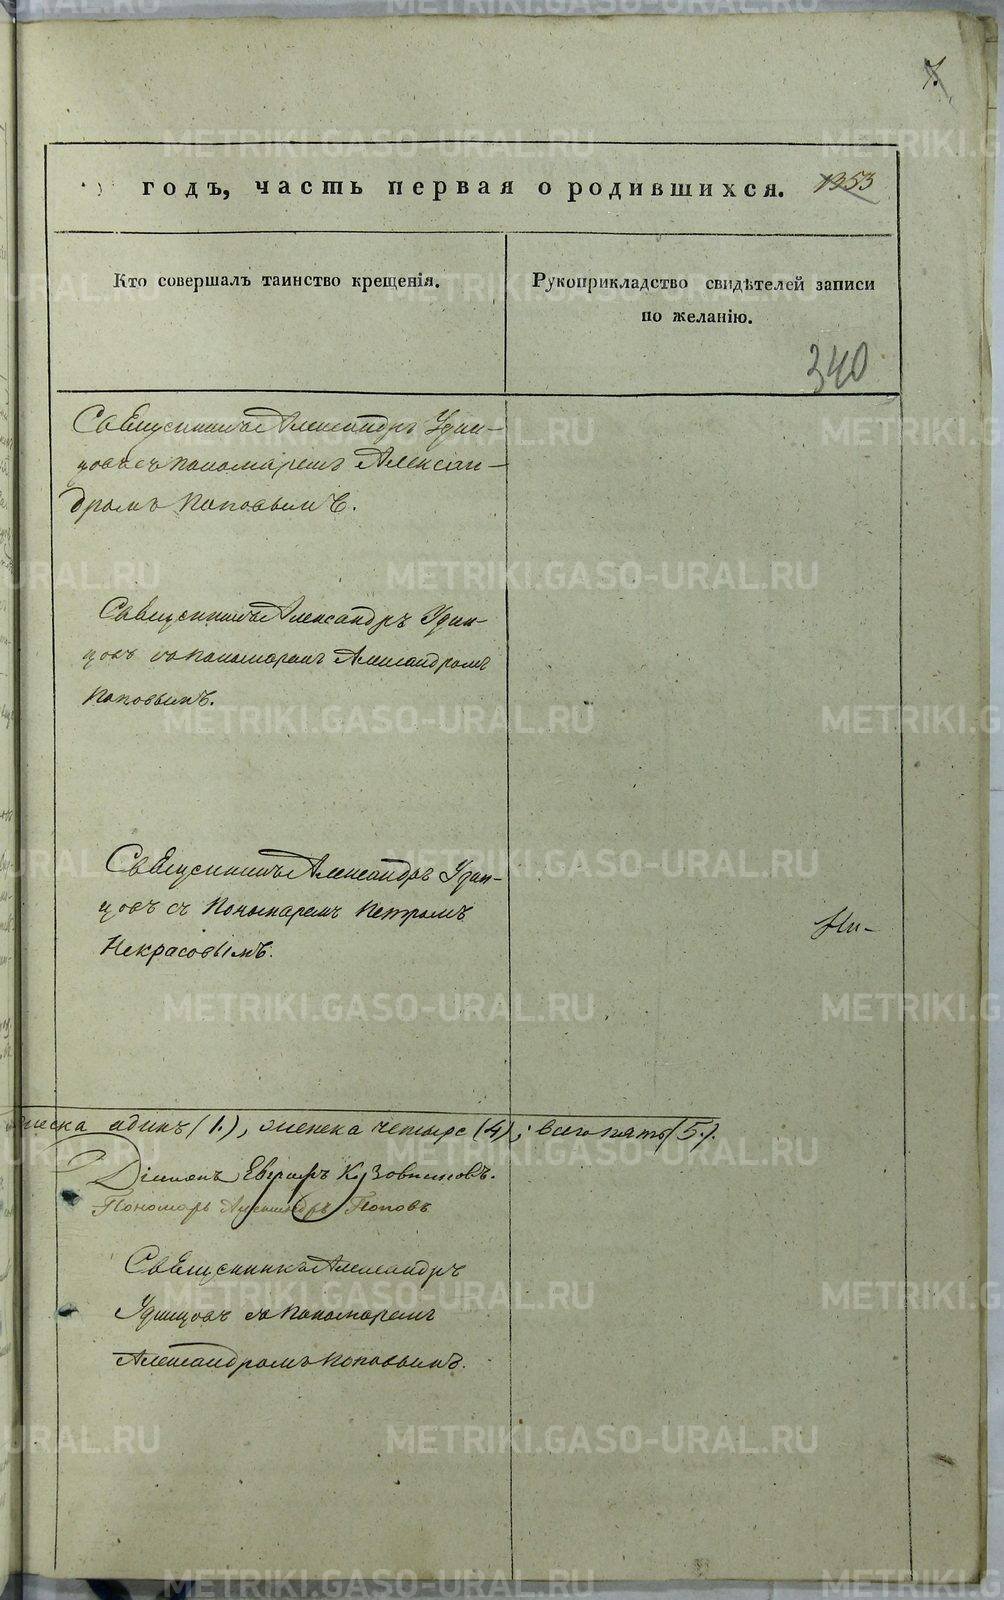 7
годъ, часть первая о родившихся. 1253
Кто совершалъ таинство крещенія.
Рукоприкладство свидѣтелей записи
по желанію.
340
Священникъ Александръ Удин-
цовъ съ пономаремъ Алексан-
дромъ Поповымъ.
Священникъ Александръ Удин-
цовъ съ пономаремъ Александромъ
Поповымъ.
Священникъ Александръ Удин-
цовъ съ Пономаремъ Петромъ
Некрасовымъ.
Ни-
одинъ (1.), женска четыре (4); всего пять (5.).
Діаконъ Кузовниковъ.
Пономарь Александръ Поповъ
Священникъ Александръ
Удинцовъ съ пономаремъ
Александромъ Поповымъ.
METRIKI.GASO-URAL.RU